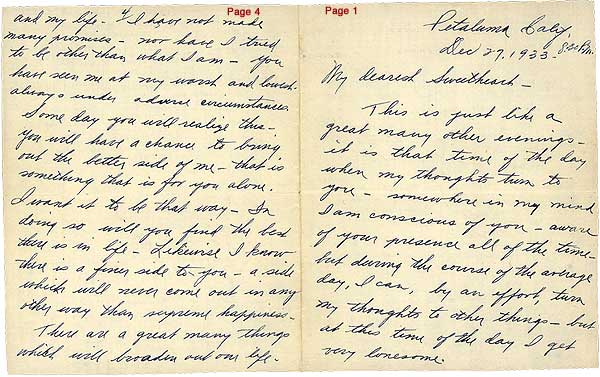 Page 4
and my life - I have not made
many promises - nor have I tried
to be other than what I am - you
have seen me at my worst and lowest -
always under adverse circumstances.
Some day you will realize this -
you will have a chance to bring
out the better side of me - that is
something that is for you alone.
I want it to be that way - In
doing so will you find the best
there is in life - Likewise I know
there is a finer side to you - a side
which will never come out in any
other way than supreme happiness -
There are a great many things
which will broaden out our life.
Page 1
Petaluma Calif,
Dec 27, 1933 - 8:30 P.m.
My dearest Sweetheart -
This is just like a
great many other evenings -
it is that time of the day
when my thoughts turn to
you - somewhere in my mind
I am conscious of you - aware
of your presence all of the time -
but during the course of the average
day, I can, by an effort, turn
my thoughts to other things - but
at this time of the day I get
very lonesome.